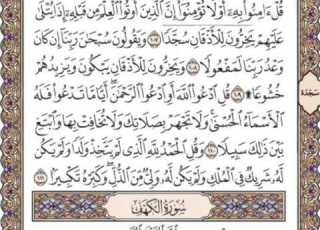 قُلْ ءَامِنُوا۟ بِهِۦٓ أَوْ لَا تُؤْمِنُوٓا۟ إِنَّ ٱلَّذِينَ أُوتُوا۟ ٱلْعِلْمَ مِن قَبْلِهِۦٓ إِذَا يُتْلَىٰ
عَلَيْهِمْ يَخِرُّونَ لِلْأَذْقَانِ سُجَّدًا ١٠٧ وَيَقُولُونَ سُبْحَٰنَ رَبِّنَآ إِن كَانَ
وَعْدُ رَبِّنَا لَمَفْعُولًا ١٠٨ وَيَخِرُّونَ لِلْأَذْقَانِ يَبْكُونَ وَيَزِيدُهُمْ
خُشُوعًا ۩ ١٠٩ قُلِ ٱدْعُوا۟ ٱللَّهَ أَوِ ٱدْعُوا۟ ٱلرَّحْمَٰنَ أَيًّا مَّا تَدْعُوا۟ فَلَهُ
ٱلْأَسْمَآءُ ٱلْحُسْنَىٰ وَلَا تَجْهَرْ بِصَلَاتِكَ وَلَا تُخَافِتْ بِهَا وَٱبْتَغِ
بَيْنَ ذَٰلِكَ سَبِيلًا ١١٠ وَقُلِ ٱلْحَمْدُ لِلَّهِ ٱلَّذِى لَمْ يَتَّخِذْ وَلَدًا وَلَمْ يَكُن
لَّهُۥ شَرِيكٌ فِى ٱلْمُلْكِ وَلَمْ يَكُن لَّهُۥ وَلِىٌّ مِّنَ ٱلذُّلِّ وَكَبِّرْهُ تَكْبِيرًۢا ١١١
سُورَةُ الكَهْفِ
سَجْدَة